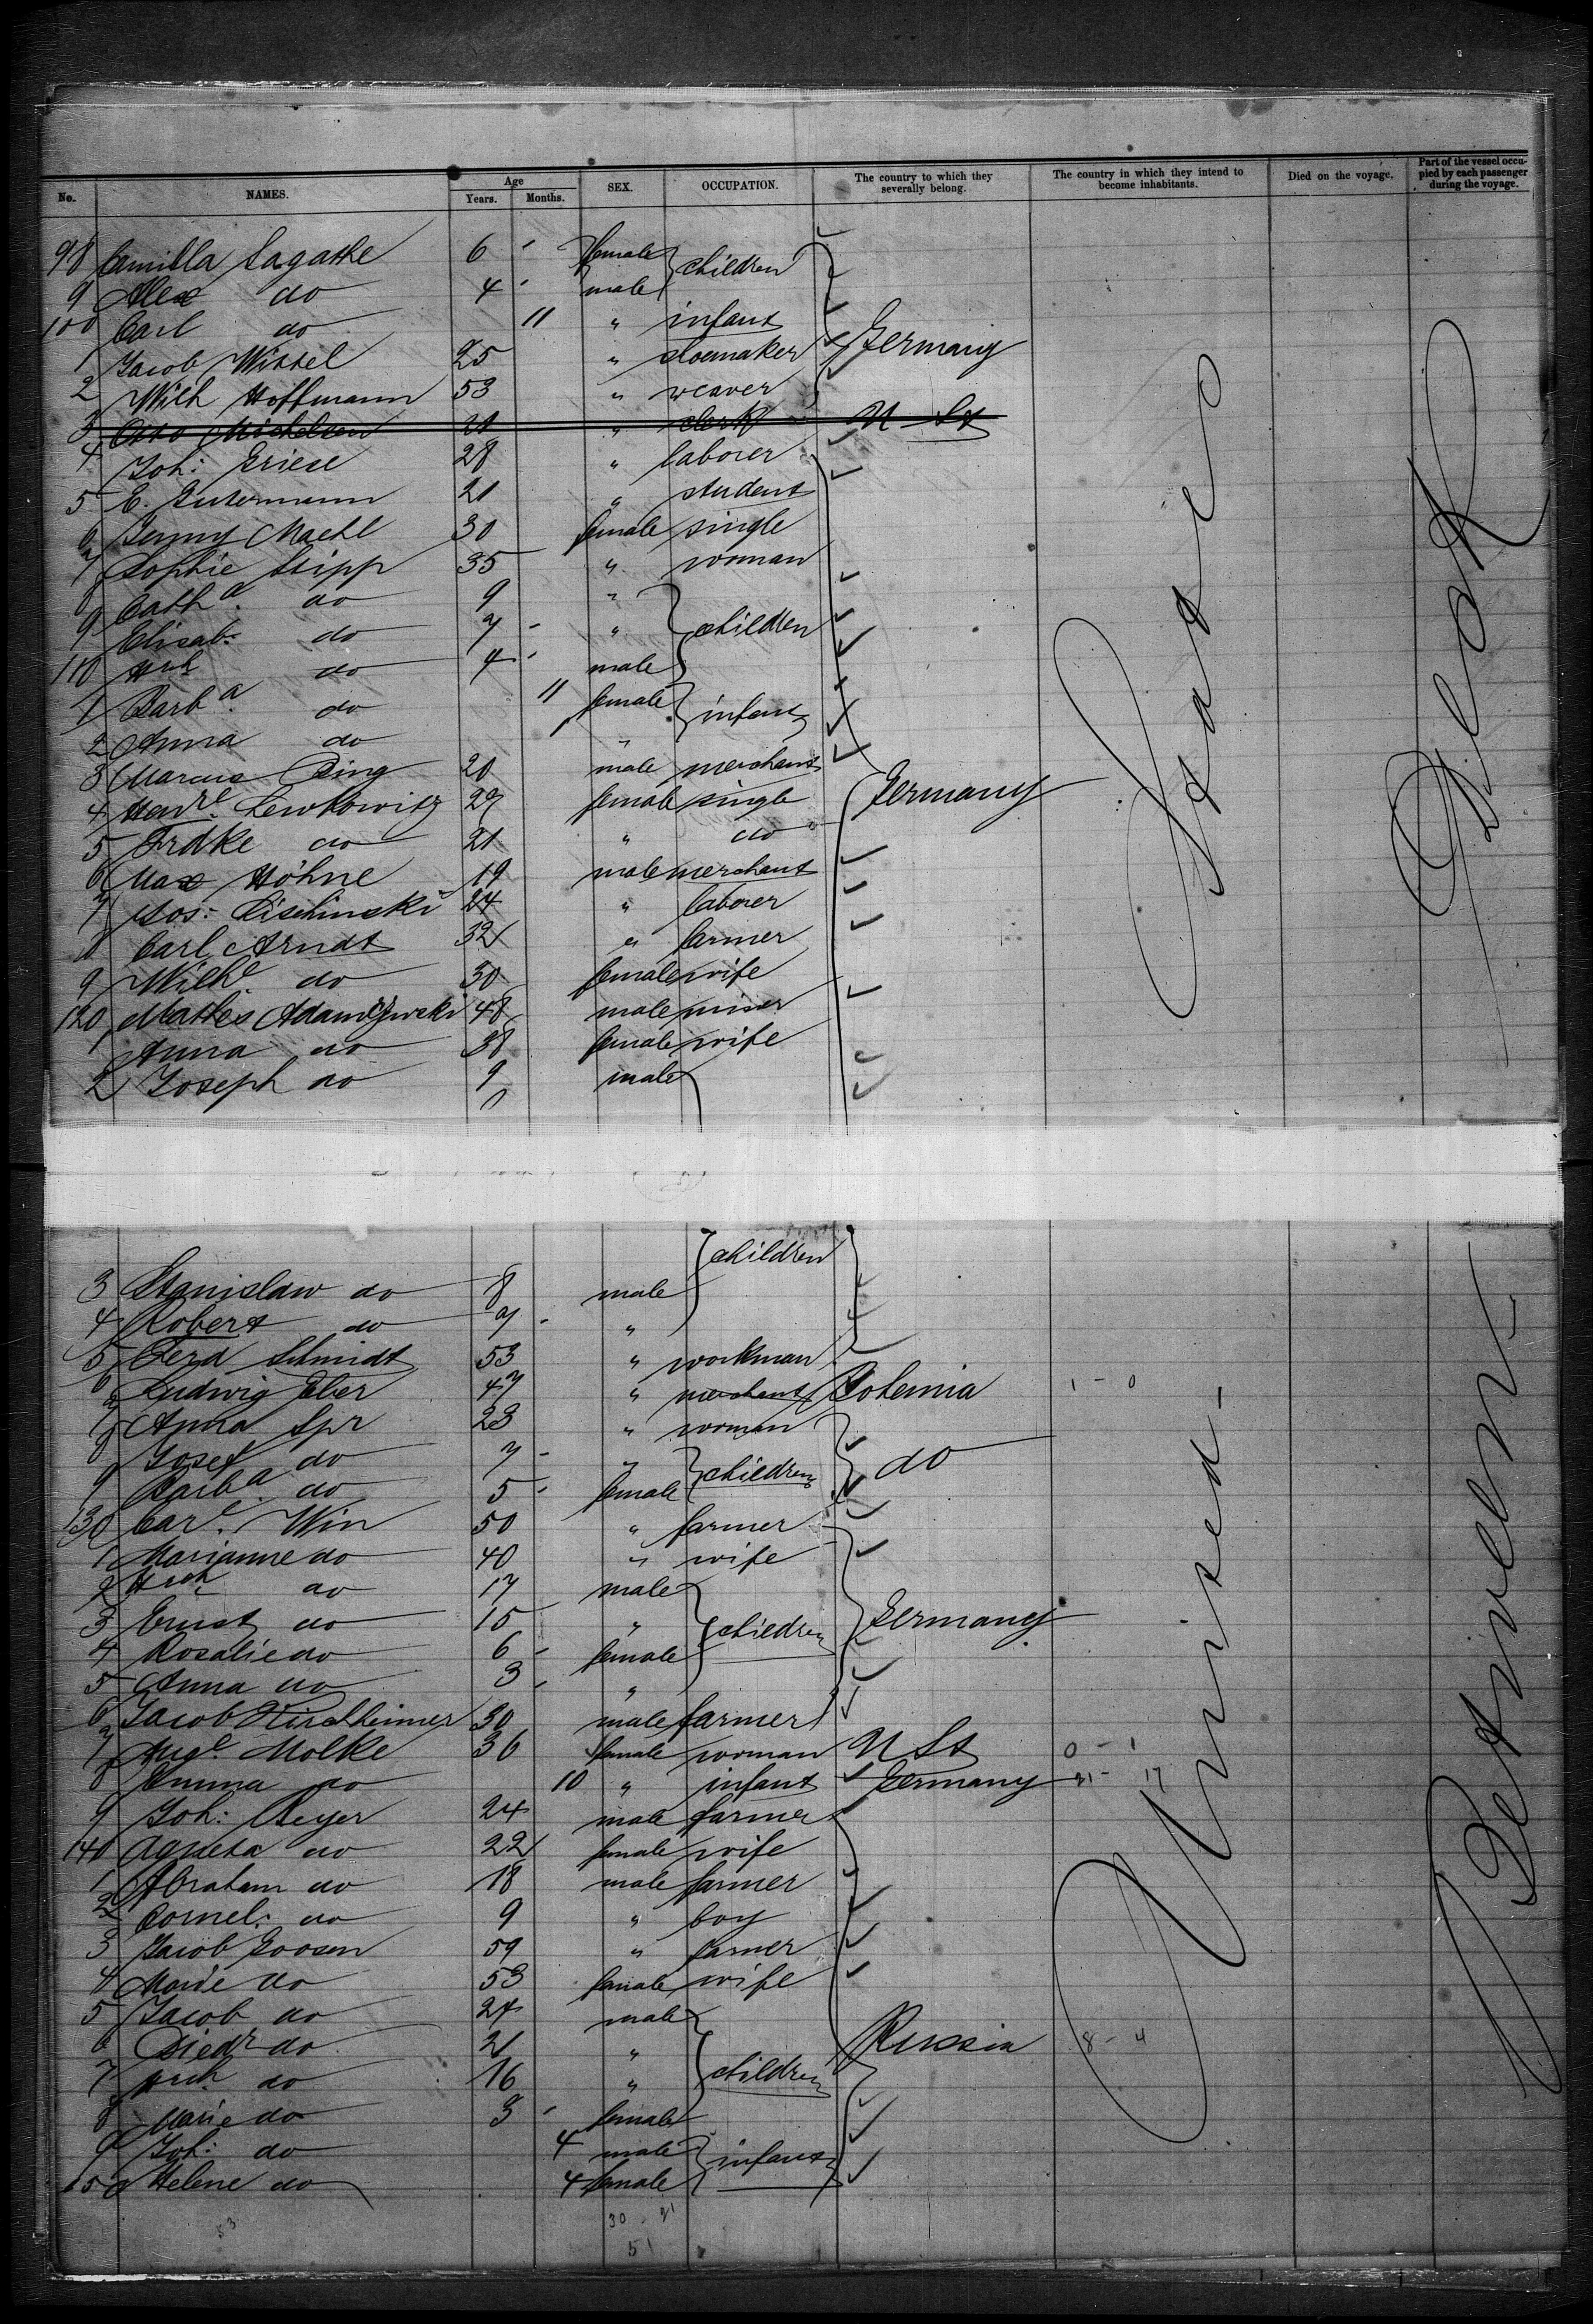 No. NAMES. Age Years. Months. SEX. OCCUPATION. The country to which they severally belong. The country in which they intend to become inhabitants. Died on the voyage. Part of the vessel occupied by each passenger during the voyage.
98 Camilla Lagathe 6 female children
9 Alex do 4 male
100 Carl do 11 " infant
1 Jacob Wissel 25 " shoemaker Germany
2 Wilh Hoffmann 53 " weaver
3 Otto Michelsen 21 " clerk U St
4 Joh: Griese 28 " laborer
5 E. Gutermann 21 " student
6 Jenny Machl 30 female single
7 Sophie Stipp 35 " woman
8 Catha. do 9 "
9 Elisab: do 7 " children
110 Hch do 4 male
1 Barba. do 11 female infants
2 Anna do "
3 Marcus Bing 20 male merchant
4 Henre. Lewkowitz 27 female single Germany
5 Erdke do 21 " do
6 Max Höhne 19 male merchant
7 Jos: Cischinski 24 " laborer
8 Carl Arndt 32 " farmer
9 Wilhe. do 30 female wife
120 Mathes Adamczewski 48 male miner
1 Anna do 38 female wife
2 Joseph do 9 male
children
3 Stanislaw do 8 male
4 Robert do 7 "
5 Ferd Schmidt 53 " workman
6 Ludwig Eber 47 " merchant Bohemia 1 - 0
7 Anna Spr 23 " woman
8 Josef do 7 " children do
9 Barba do 5 female
130 Care. Win 50 " farmer
1 Marianne do 40 " wife
2 Hch do 17 male
3 Ernst do 15 " children Germany
4 Rosalie do 6 female
5 Anna do 3 "
6 Jacob Hirschheimer 30 male farmer
7 Auge. Molke 36 female woman U St 0 - 1
8 Emma do 10 " infant Germany 21 - 17
9 Joh: Reyer 24 male farmer
140 Agneta do 22 female wife
1 Abraham do 18 male farmer
2 Cornel: do 9 " boy
3 Jacob Goosen 59 " farmer
4 Marie do 53 female wife
5 Jacob do 24 male
6 Diedr do 21 " Russia 8 - 4
7 Hch. do 16 " children
8 Marie do 3 female
9 Joh: do 4 male infants
150 Helene do 4 female
30 21
51
53
United States
Betweendeck